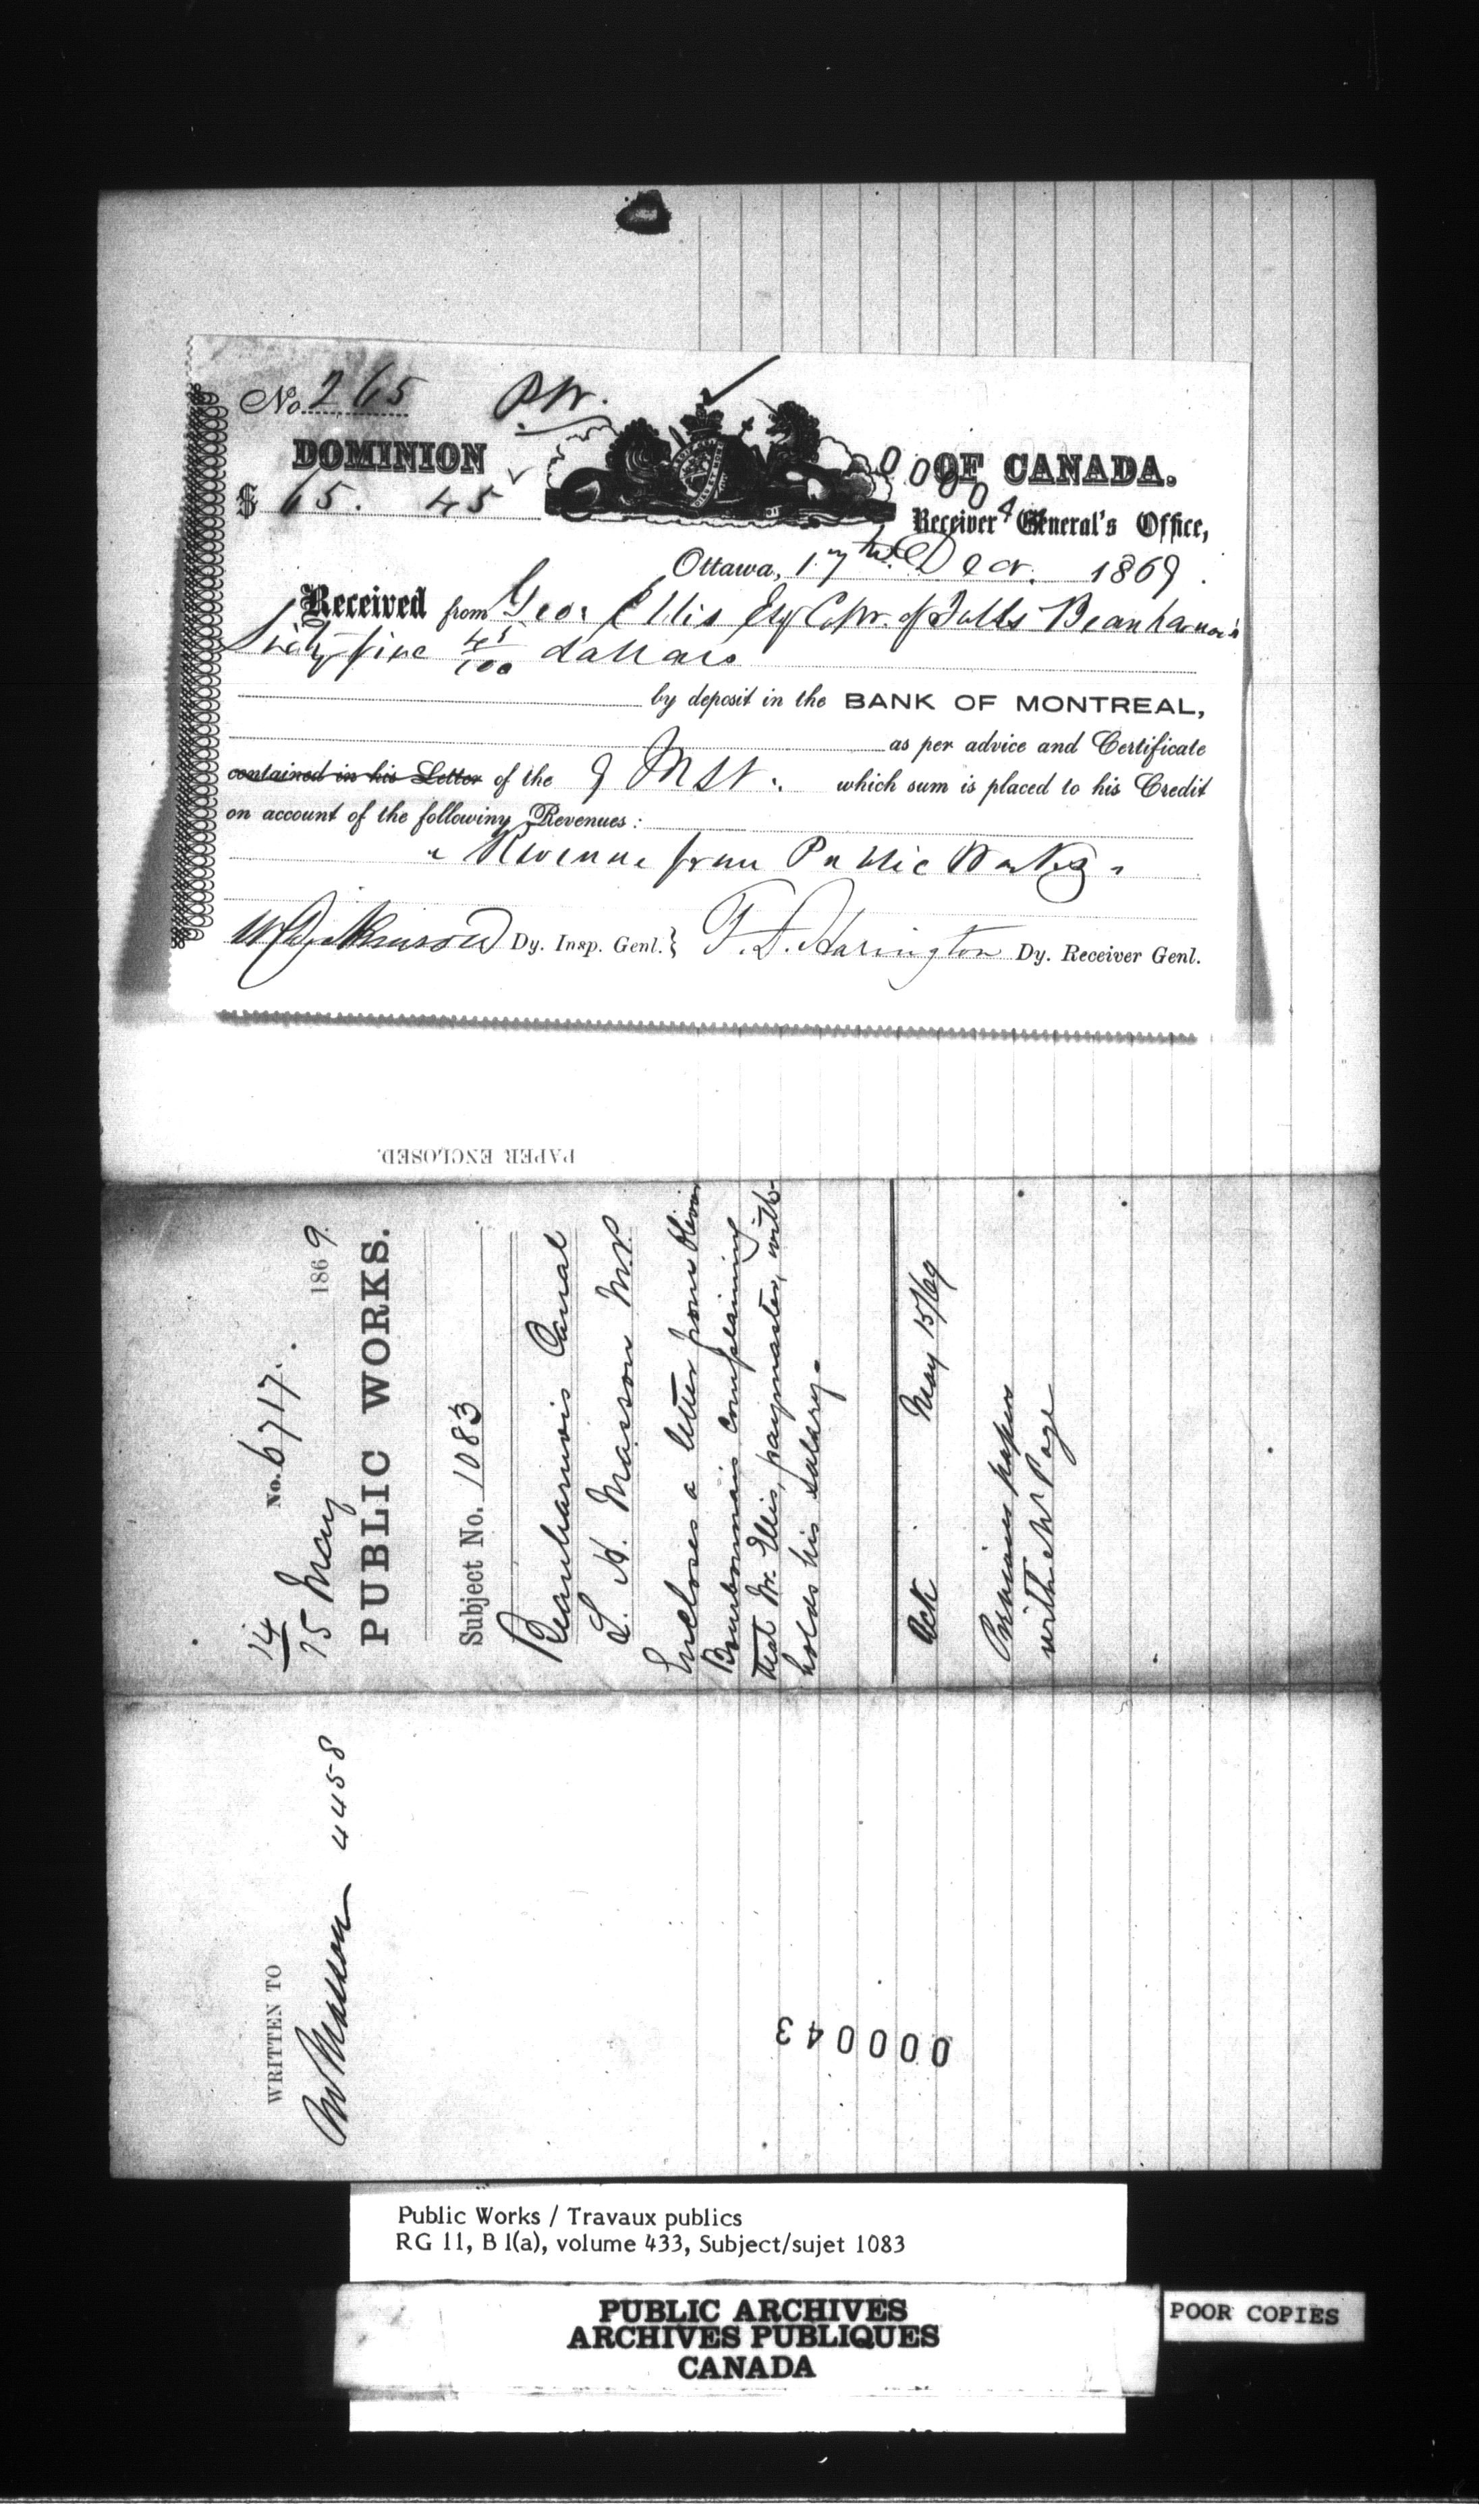 No. 265 P.W.
DOMINION OF CANADA.
$ 65. 45
Receiver General's Office,
Ottawa, 17th Decr. 1869.
Received from Geo. Ellis Esq Collr. of Tolls Beauharnois
Sixty five 45/100 dollars
by deposit in the BANK OF MONTREAL,
as per advice and Certificate
contained in his Letter of the 9 Inst. which sum is placed to his Credit
on account of the following Revenues:
" Revenue from Public Works "
W Dickinson Dy. Insp. Genl. } T. D. Harington Dy. Receiver Genl.
PAPER ENCLOSED.
No. 6717.
14
15 May 1869.
PUBLIC WORKS.
Subject No. 1083
Beauharnois Canal
L. H. Masson M.P.
Encloses a letter from Olivier
Bourbonnais complaining
that Mr. Ellis, paymaster, with-
holds his salary.
Ack May 15/69
Previous papers
with Mr Page
WRITTEN TO
Mr Masson 4458
000043
Public Works / Travaux publics
RG 11, B 1(a), volume 433, Subject/sujet 1083
PUBLIC ARCHIVES
ARCHIVES PUBLIQUES
CANADA
POOR COPIES